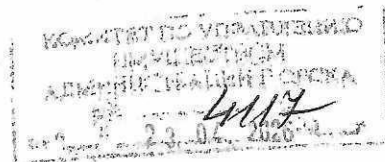 КОМИТЕТ ПО УПРАВЛЕНИЮ
ИМУЩЕСТВОМ
АДМИНИСТРАЦИИ Г. ОРСКА
4117
23 04 2020